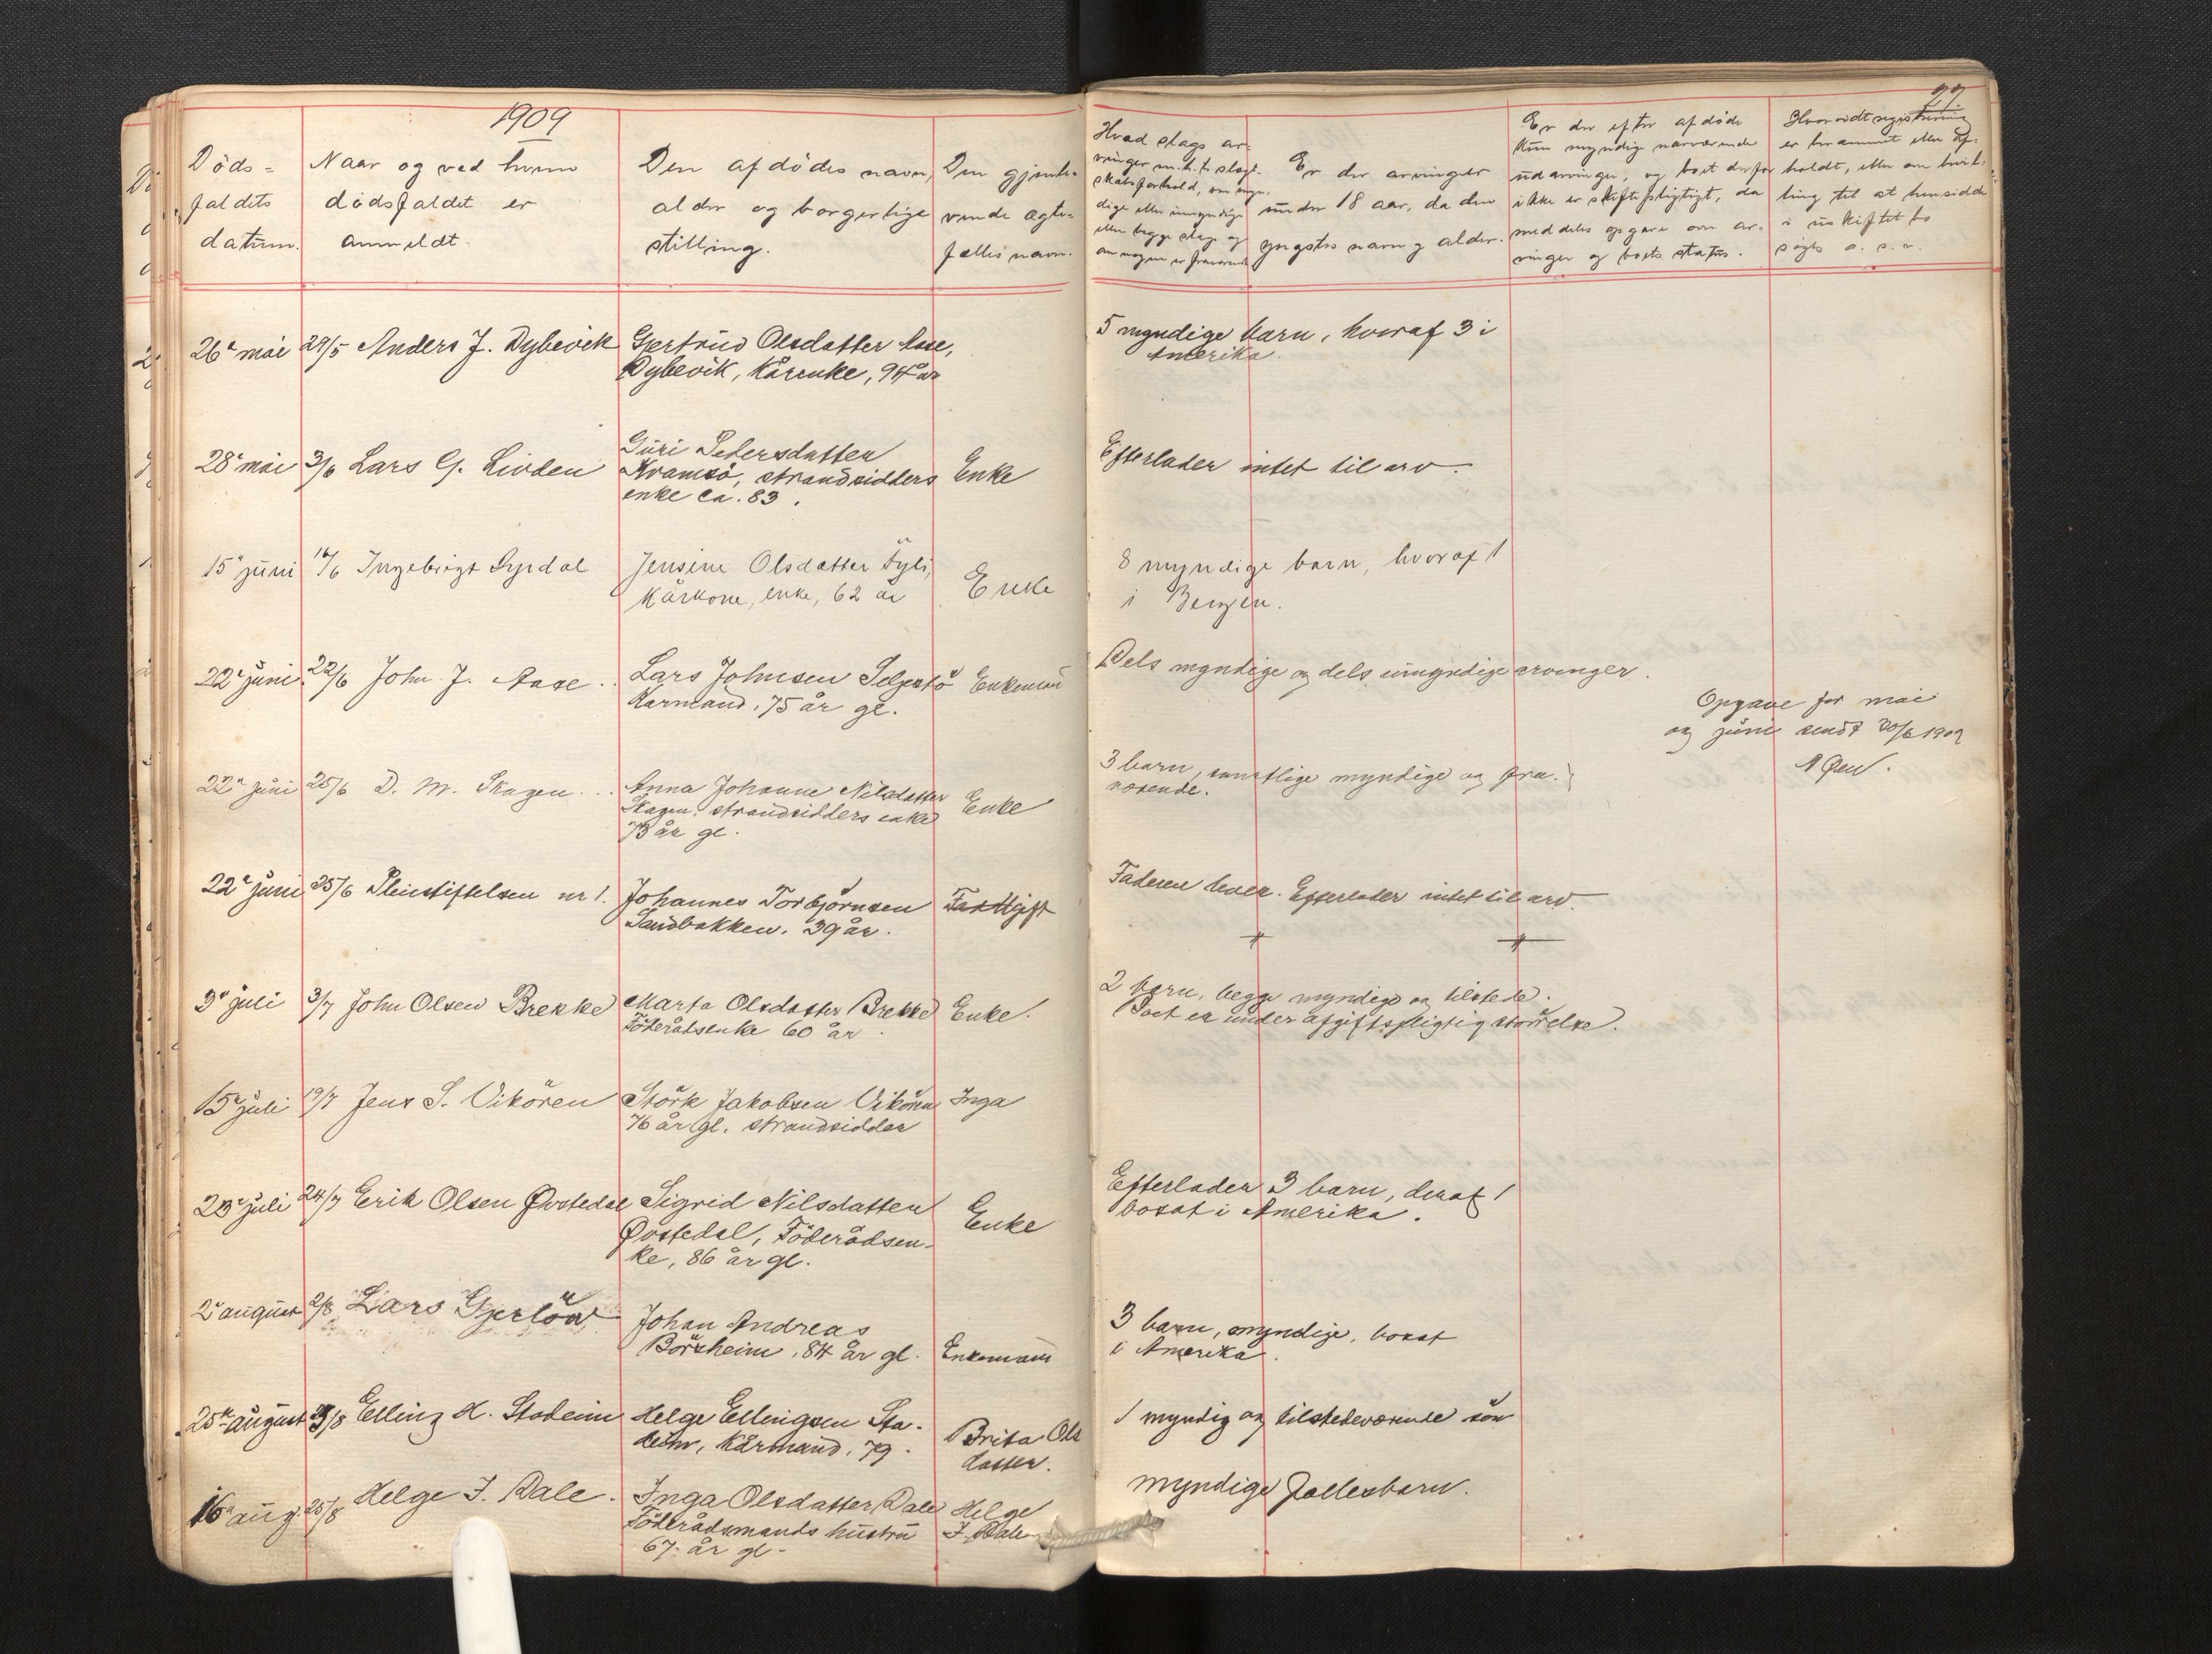 1909
27.
Döds-
faldets
datum.
Naar og ved hvem
dödsfaldet er
anmeldt.
Den afdödes navn,
alder og borgerlige
stilling.
Den gjenle-
vende ægte-
fælles navn.
Hvad slags ar-
vinger m.h.t. slægt-
skabsforhold, om myn-
dige eller umyndige
eller begge slags og
om nogen er fraværende
Er der arvinger
under 18 aar, da den
yngstes navn og alder.
Er der efter afdöde
kun myndige nærværende
udarvinger, og boet derfor
ikke er skiftepligtigt, da
meddeles opgave over ar-
vinger og boets status.
Hvorvidt registrering
er berammet eller af-
holdt, eller om bevil-
ling til at hensidde
i uskiftet bo
söges o.s.v.
26' mai 29/5 Anders J. Dybevik Gjertrud Olsdatter Aase,
Dybevik, Kårenke, 94 år
5 myndige barn, hvoraf 3 i
Amerika.
28' mai 3/6 Lars G. Livden Guri Pedersdatter
Kvamsö, strandsidders
enke ca. 83.
Enke
Efterlader intet til arv.
15' juni 16/6 Ingebrigt Syrdal Jensine Olsdatter Fyli,
Kårkone, enke, 62 år
Enke
8 myndige barn, hvoraf 1
i Bergen.
22' juni 22/6 John J. Aase. Lars Johnsen Selgestö
Karmand, 75 år gl.
Enkemand
Dels myndige og dels umyndige arvinger.
Opgave for mai
og juni sendt 30/6 1909
22' juni 25/6 D. M. Skagen. Anna Johanne Nilsdatter
Skagen, strandsidders enke
73 år gl.
Enke
3 barn, samtlige myndige og fra-
værende.
22' juni 25/6 Pleiestiftelsen nr 1. Johannes Torbjörnsen
Sandbakken. 39 år.
Fastligift
Faderen lever. Efterlader intet til arv.
3' juli 3/7 John Olsen Brekke Marta Olsdatter Brekke
Föderådsenke 60 år.
Enke.
2 barn, begge myndige og tilstede.
Boet er under afgiftspligtig störrelse.
15' juli 19/7 Jens S. Vikören Störk Jakobsen Vikören
76 år gl. strandsidder
Inga
23' juli 24/7 Erik Olsen Øvstedal Sigrid Nilsdatter
Øvstedal, Föderådsen-
ke, 86 år gl.
Enke
Efterlader 3 barn, deraf 1
bosat i Amerika.
2' august 2/8 Lars Gjerlöw Johan Andreas
Börsheim, 84 år gl.
Enkemand
3 barn, myndige, bosat
i Amerika.
25' august /8 Elling H. Stadeim Helge Ellingsen Sta-
deim, Kårmand, 79.
Brita Ols
datter.
1 myndig og tilstedeværende sön
16' aug. 25/8 Helge J. Dale. Inga Olsdatter Dale
Föderådsmands hustru
67 år gl.
Helge
J. Dale
myndige fællesbarn.